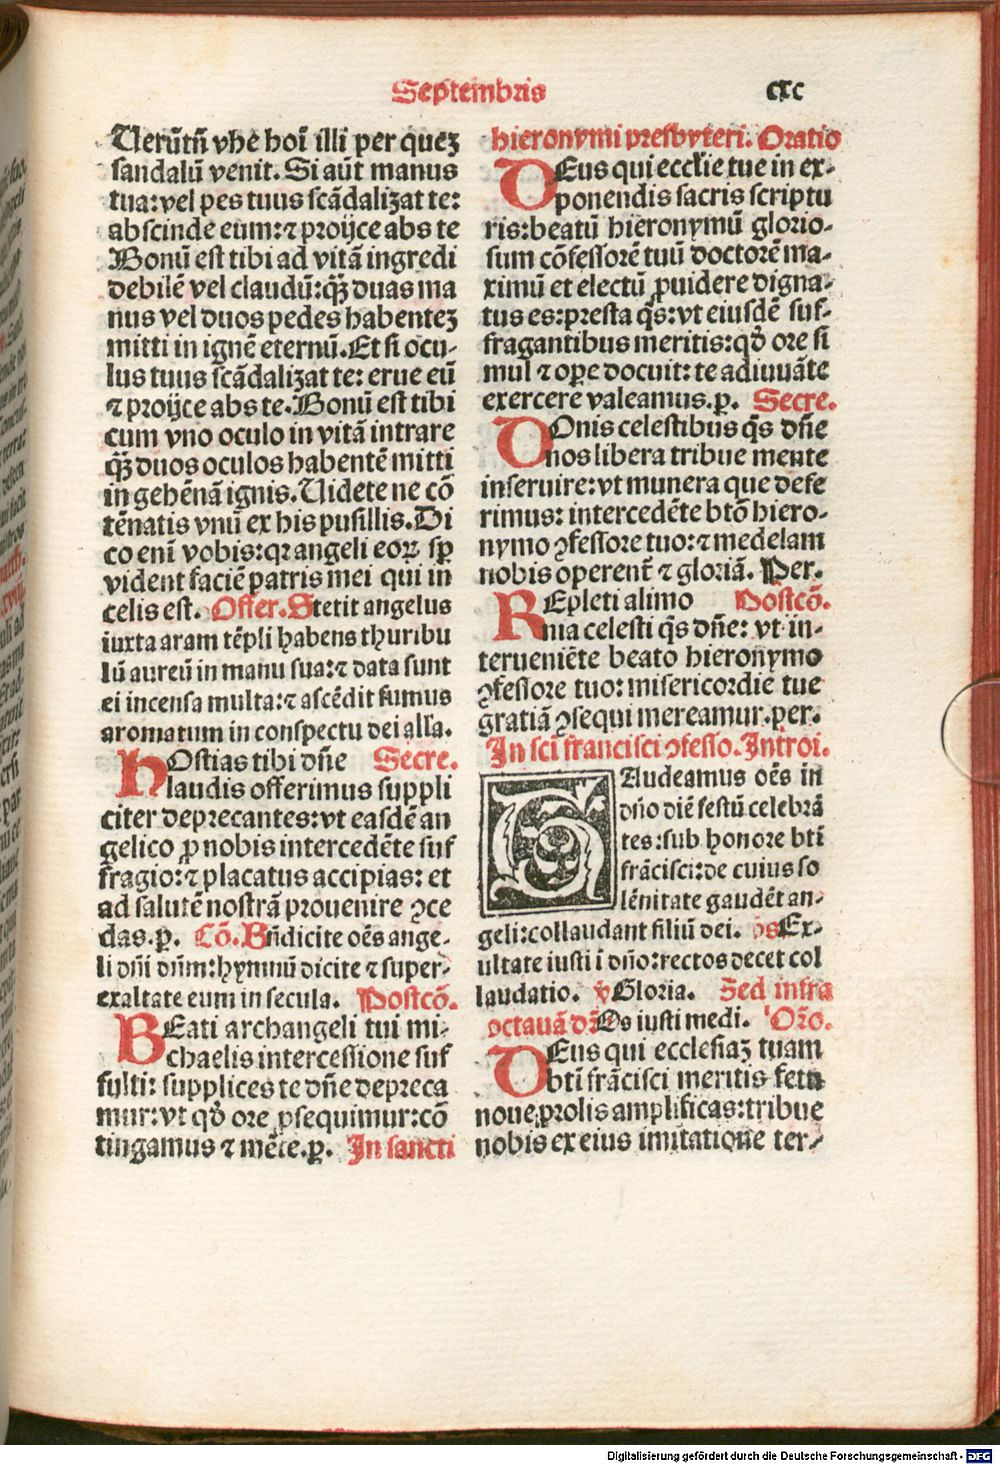 Septembris cxc
Uerūtñ vhe hoī illi per queʒ
scandalū venit. Si aūt manus
tua: vel pes tuus scādaliʒat te:
abscinde eum: ⁊ proijce abs te
Bonū est tibi ad vitā ingredi
debilē vel claudū: qꝫ̄ duas ma
nus vel duos pedes habenteʒ
mitti in ignē eternū. Et si ocu-
lus tuus scādaliʒat te: erue eū
⁊ proijce abs te. Bonū est tibi
cum vno oculo in vitā intrare
qꝫ̄ duos oculos habentē mitti
in gehēnā ignis. Uidete ne cō
tēnatis vnū ex his pusillis. Di
co enī vobis: qꝛ angeli eoꝝ sp̄
vident faciē patris mei qui in
celis est. Offer. Stetit angelus
iuxta aram tēpli habens thuribu
lū aureū in manu sua: ⁊ data sunt
ei incensa multa: ⁊ ascēdit fumus
aromatum in conspectu dei alľa.
hOstias tibi dñe Secre.
laudis offerimus suppli
citer deprecantes: vt easdē an
gelico ꝓ nobis intercedēte suf
fragio: ⁊ placatus accipias: et
ad salutē nostrā prouenire ꝯce
das. ꝑ. Cō. Bñdicite oēs ange-
li dñi dñm: hymnū dicite ⁊ super-
exaltate eum in secula. Postcō.
BEati archangeli tui mi-
chaelis intercessione suf
fulti: supplices te dñe depreca
mur: vt qď ore ꝓsequimur: cō
tingamus ⁊ mēte. ꝑ. In sancti
hieronymi presbyteri. Oratio
DEus qui ecclie tue in ex-
ponendis sacris scriptu
ris: beatū hieronymū glorio-
sum cōfessorē tuū doctorē ma-
ximū et electū ꝓuidere digna-
tus es: presta qs̄: vt eiusdē suf-
fragantibus meritis: qď ore si
mul ⁊ oꝑe docuit: te adiuuāte
exercere valeamus. ꝑ. Secre.
DOnis celestibus qs̄ dñe
nos libera tribue mente
inseruire: vt munera que defe
rimus: intercedēte btō hiero-
nymo ꝯfessore tuo: ⁊ medelam
nobis operent̄ ⁊ gloriā. Per.
REpleti alimo Postcō.
nia celesti qs̄ dñe: vt in-
terueniēte beato hieronymo
ꝯfessore tuo: misericordie tue
gratiā ꝯsequi mereamur. per.
In scī francisci ꝯfesso. Introi.
GAudeamus oēs in
dño diē festū celebrā
tes: sub honore btī
frācisci: de cuius so
lēnitate gaudēt an-
geli: collaudant filiū dei. ps Ex-
ultate iusti ī dño: rectos decet col
laudatio. ℣ Gloria. Sed infra
octauā dr̄ Os iusti medi. Orō.
DEus qui ecclesiaʒ tuam
btī frācisci meritis fetu
noue ꝓlis amplificas: tribue
nobis ex eius imitatione ter-
Digitalisierung gefördert durch die Deutsche Forschungsgemeinschaft - DFG